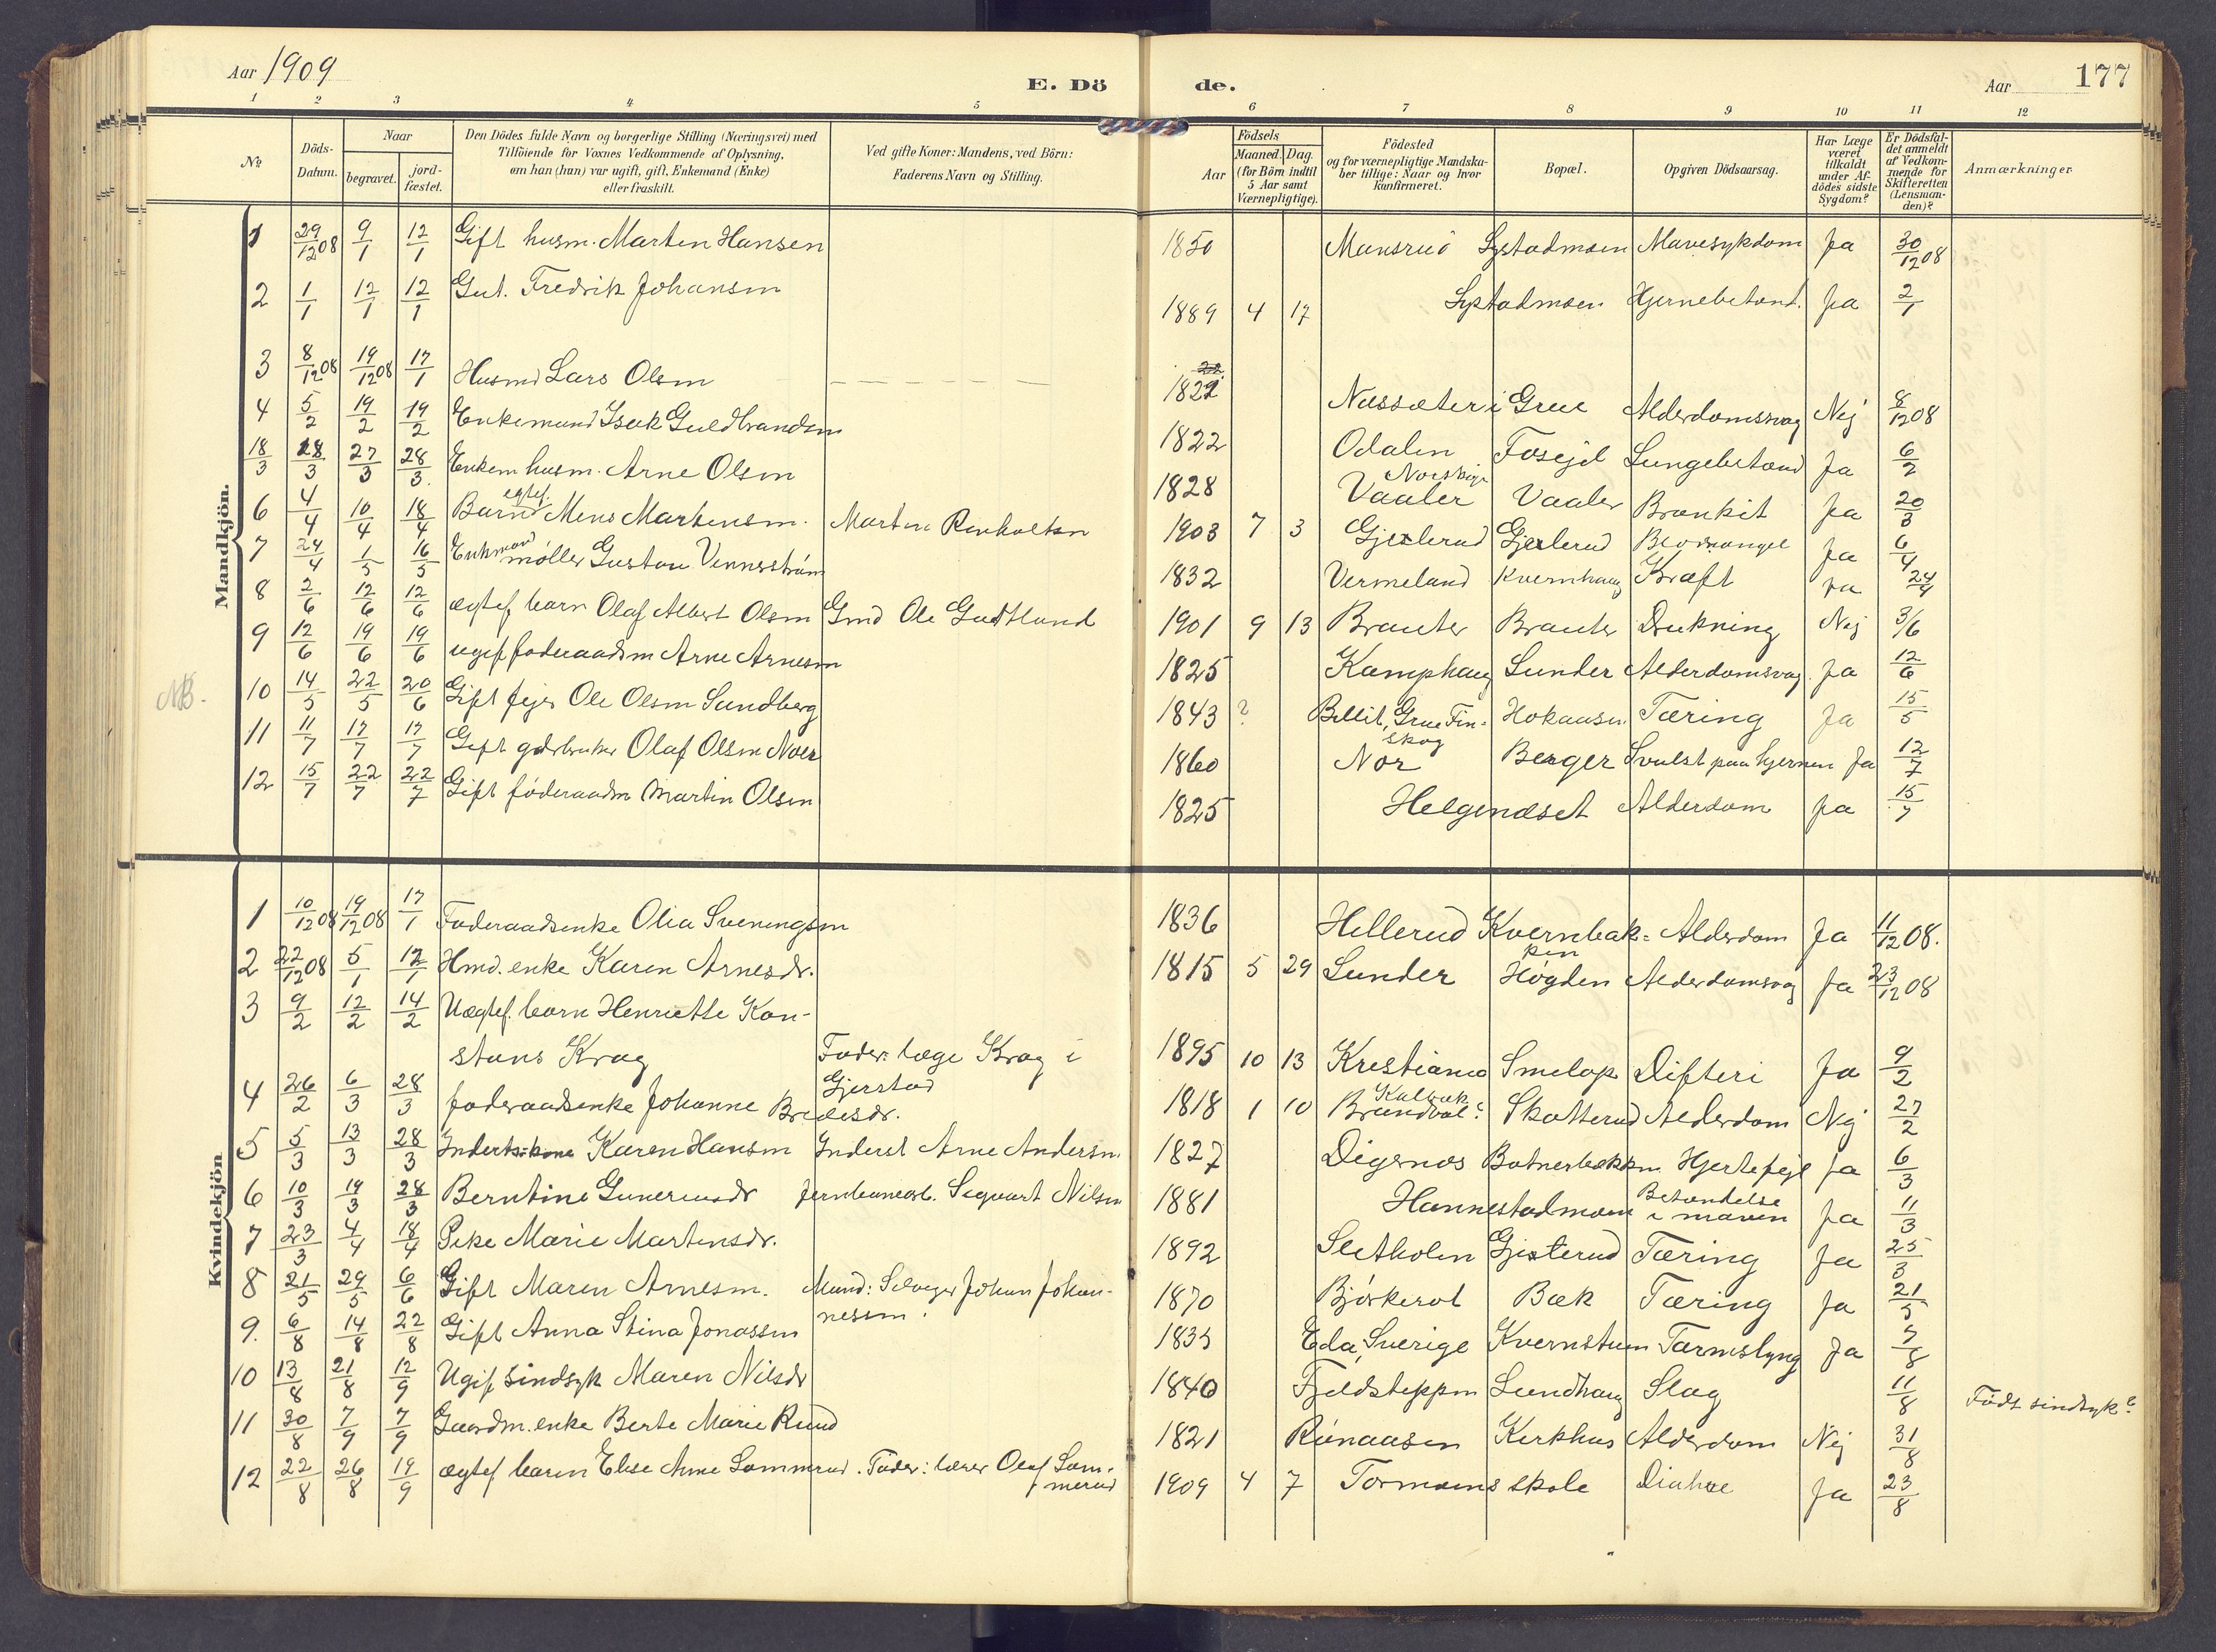 Aar 1909
E. Dö de.
Aar 177
1 2 3 4 5 6 7 8 9 10 11 12
No. Döds-Datum. Naar begravet. jord-fæstet. Den Dödes fulde Navn og borgerlige Stilling (Næringsvei) med Tilföiende for Voxnes Vedkommende af Oplysning, om han (hun) var ugift, gift, Enkemand (Enke) eller fraskilt. Ved gifte Koner: Mandens, ved Börn: Faderens Navn og Stilling. Aar Födsels Maaned. Dag. (for Börn indtil 5 Aar samt Værnepligtige). Födested og for værnepligtige Mandskaber tillige: Naar og hvor konfirmeret. Bopæl. Opgiven Dödsaarsag. Har Læge været tilkaldt under Afdödes sidste Sygdom? Er Dödsfaldet anmeldt af Vedkommende for Skifteretten (Lensmanden)? Anmærkninger
Mandkjön.
1 29/12 08 9/1 12/1 Gift husm. Marten Hansen 1850 Mansrud Systadmoen Mavesykdom Ja 30/12 08
2 1/1 12/1 12/1 Gut. Fredrik Johansen 1889 4 17 Systadmoen Hjernebetænd. Ja 2/1
3 8/12 08 19/12 08 17/1 Husmd Lars Olsen 1822 Næssæter i Grue Alderdomssvag Nej 8/12 08
4 5/2 19/2 19/2 Enkemand Isak Guldbrandsen 1822 Odalen Fosejd Lungebetænd Ja 6/2
18/3 18/3 27/3 28/3. Enkem husm. Arne Olsen 1828 Vaaler Vaaler Bronkit Ja 20/3
6 4/4 10/4 18/4 Barn egtef. Mens Martensen. Marten Renholtsen 1903 7 3 Gjeslerud Gjeslerud Ja 6/4
7 24/4 1/5 16/5 Enkmand møller Gustav Vennerström 1832 Vermeland Kvernhaug Kræft Ja 24/4
8 2/6 12/6 12/6 ægtef barn Olaf Albert Olsen Gmd Ole Gudtlund 1901 9 13 Brauter Brauter Drukning Nej 3/6
9 12/6 19/6 19/6 ugift foderaadsm Arne Arnesen 1825 Kamphaug Lunder Alderdomsvag. Ja 12/6
NB. 10 14/5 22/5 20/6 Gift fejer Ole Olsen Sundberg 1843 ? Bellit, Grue Finskog Hokaasen Tæring Ja 15/5
11 11/7 17/7 17/7 Gift gdrbruker Olaf Olsen Noer 1860 Nor Berger Svulst paa hjernen Ja 12/7
12 15/7 22/7 22/7 Gift föderaadm Martin Olsen 1825 Helgenæset Alderdom Ja 15/7
Kvindekjön
1 10/12 08 19/12 08 17/1 Foderaadsenke Olia Sveningsen 1836 Hellerud Kvernbakken Alderdom Ja 11/12 08.
2 22/12 08 5/1 12/1 Hmd. enke Karen Arnesdr. 1815 5 29 Lunder Høgden Alderdomsvag Ja 23/12 08
3 9/2 12/2 14/2 Uægtef. barn Henriette Kon-
stans Krag Fader: læge Krag i Gjerstad 1895 10 13 Krestiania Smelop Difteri Ja 9/2
4 26/2 6/3 28/3 foderaadsenke Johanne Bredesdr. 1818 1 10 Brandval? Skatterud Alderdom Nej 27/2
5 5/3 13/3 28/3 Inderts: kone Karen Hansen Inderst Arne Andersen. 1827 Digernes Botnerbækken Hjertefejl Ja 6/3
6 10/3 19/3 28/3 Berntine Gunerusdr Jernbanearb. Sigvart Nilsen 1881 Hannestadmoen Betændelse i maven Ja 11/3
7 23/3 4/4 18/4 Pike Marie Martensdr. 1892 Sletholen Gjesterud Tæring Ja 25/3
8 21/5 29/5 6/6 Gift Maren Arnesen. Mand: Selveger Johan Johan-
nessen. 1870 Bjørkerot Bæk Tæring Ja 21/5
9. 6/8 14/8 22/8 Gift Anna Stina Jonassen 1835 Eda, Sverige Kvernstuen Tarmslyng Ja 7/8
10 13/8 21/8 12/9 Ugif sindsyk Maren Nilsdr 1840 Fjeldsteppen Lundhaug Slag 11/8 Født sindsyk?
11 30/8 7/9 7/9 Gaardm. enke Berte Marie Rund 1821 Rünaasen Kirkhus Alderdom Nej 31/8
12 22/8 26/8 19/9 ægtef barn Else Anne Sommerud. Fader: lærer Olaf Som-
merud 1909 4 7 Tormoens skole Diahre Ja 23/8